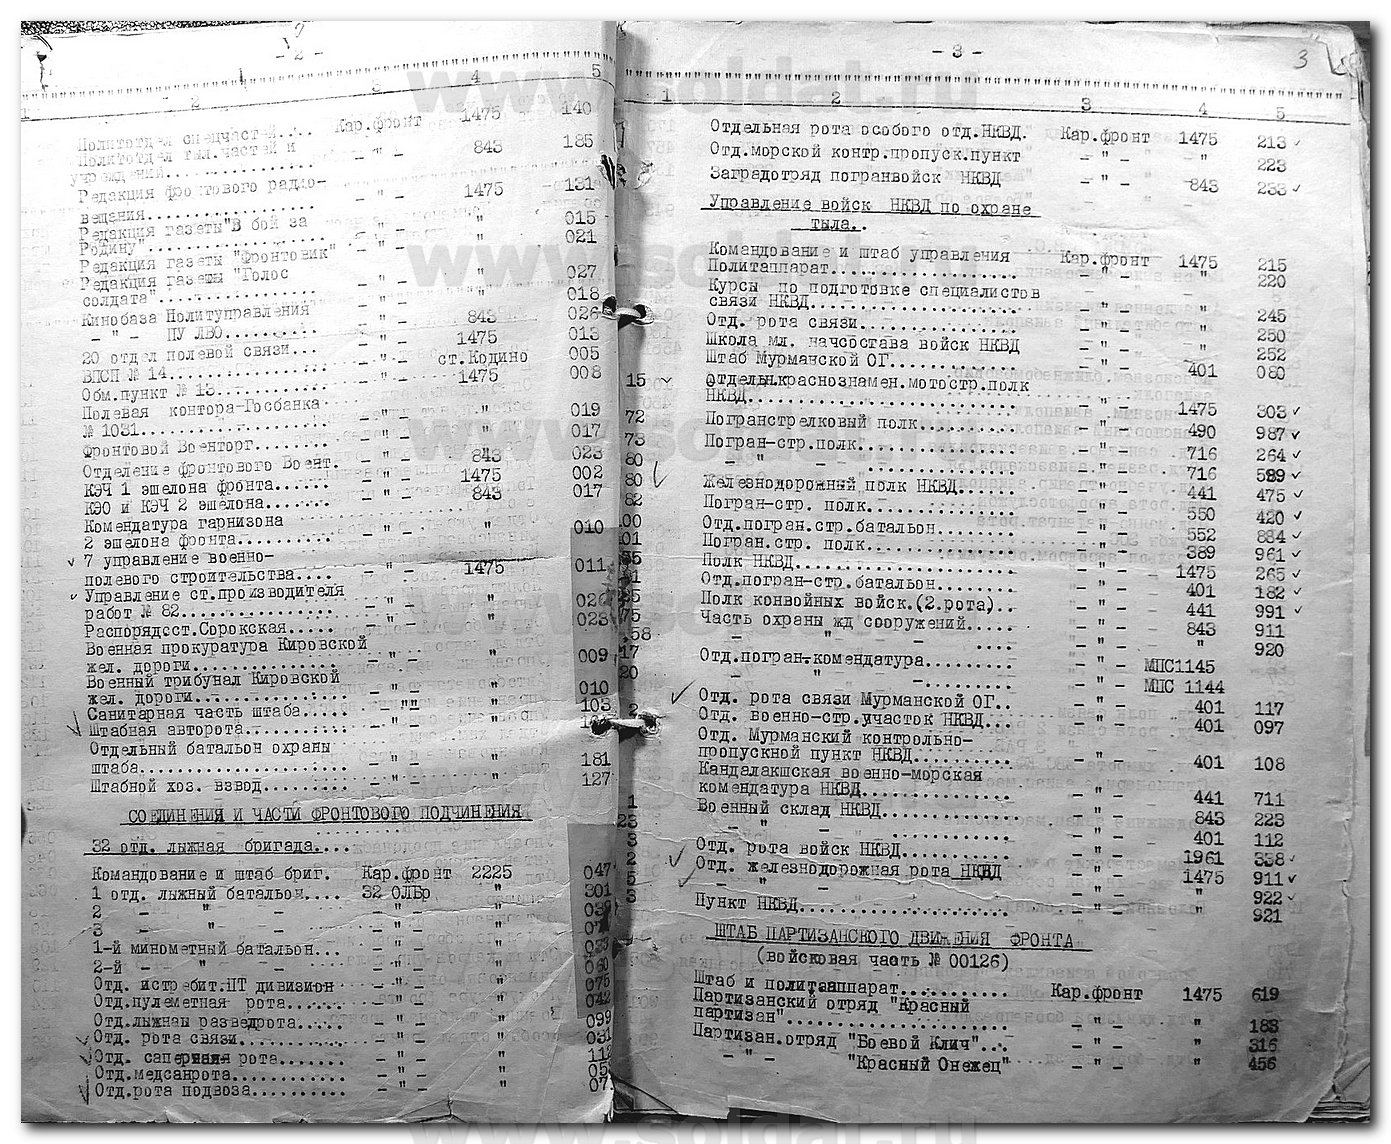 - 2 -
2 3 4 5
Политотдел спецчастей.... Кар.фронт 1475 140
Политотдел тыл.частей и
учреждений............... - " - 843 185
Редакция фронтового радио-
вещания.................. - " - 1475 131
Редакция газеты "В бой за
Родину".................. - " - " 015
Редакция газеты "Фронтовик" - " - " 021
Редакция газеты "Голос
солдата"................. - " - " 027
Кинобаза Политуправления - " - " 018
- " - ПУ ЛВО.......... - " - 843 026
20 отдел полевой связи... - " - 1475 013
ВПСП № 14................ - " - ст.Кодино 005
Обм.пункт № 13........... - " - 1475 008
Полевая контора Госбанка
№ 1031................... - " - " 019
Фронтовой Военторг....... - " - " 017
Отделение фронтового Воент. - " - 843 023
КЭЧ 1 эшелона фронта...... - " - 1475 002
КЭО и КЭЧ 2 эшелона....... - " - 843 017
Комендатура гарнизона
2 эшелона фронта.......... - " - " 010
7 управление военно-
полевого строительства.... - " - 1475 011
Управление ст.производителя
работ № 82................ - " - " 026
Распорядст.Сорокская..... - " - " 023
Военная прокуратура Кировской
жел. дороги............... - " - " 009
Военный трибунал Кировской
жел. дороги............... - " - " 010
Санитарная часть штаба..... - " - " 103
Штабная авторота........... - " - "
Отдельный батальон охраны
штаба...................... - " - " 181
Штабной хоз. взвод......... - " - " 127
СОЕДИНЕНИЯ И ЧАСТИ ФРОНТОВОГО ПОДЧИНЕНИЯ
32 отд. лыжная бригада....
Командование и штаб бриг. Кар.фронт 2225 047
1 отд. лыжный батальон.... 32 ОЛБр " 301
2 - " - - " - " 039
3 - " - - " - "
1-й минометный батальон... - " - " 033
2-й - " - - " - " 060
Отд. истребит.ПТ дивизион - " - " 075
Отд.пулеметная рота...... - " - " 042
Отд.лыжная разведрота..... - " - " 099
Отд. рота связи........... - " - " 031
Отд. саперная рота........ - " - " 112
Отд.медсанрота............ - " - " 05
Отд.рота подвоза.......... - " - " 07
- 3 -
3
1 2 3 4 5
Отдельная рота особого отд.НКВД. Кар.фронт 1475 213
Отд.морской контр.пропуск.пункт - " - " 223
Заградотряд погранвойск НКВД - " - 843 233
Управление войск НКВД по охране
тыла..
Командование и штаб управления Кар.фронт 1475 215
Политаппарат................... - " - " 220
Курсы по подготовке специалистов
связи НКВД..................... - " - " 245
Отд. рота связи................ - " - " 250
Школа мл. начсостава войск НКВД - " - " 252
Штаб Мурманской ОГ............. - " - 401 080
Отдельн.краснознамен.мотостр.полк
НКВД........................... - " - 1475 303
Погранстрелковый полк.......... - " - 490 987
Погран-стр.полк................ - " - 716 264
- " - ............... - " - 716 589
Железнодорожный полк НКВД...... - " - 441 475
Погран-стр. полк............... - " - 550 420
Отд.погран.стр.батальон........ - " - 552 884
Погран.стр. полк............... - " - 389 961
Полк НКВД...................... - " - 1475 265
Отд.погран-стр.батальон........ - " - 401 182
Полк конвойных войск.(2.рота).. - " - 441 991
Часть охраны жд сооружений..... - " - 843 911
- " - .... - " - " 920
Отд.погран-комендатура......... - " - МПС1145
- " - ......... - " - МПС 1144
Отд. рота связи Мурманской ОГ.. - " - 401 117
Отд. военно-стр.участок НКВД... - " - 401 097
Отд. Мурманский контрольно-
пропускной пункт НКВД.......... - " - 401 108
Кандалакшская военно-морская
комендатура НКВД............... - " - 441 711
Военный склад НКВД............. - " - 843 223
- " - ............ - " - 401 112
Отд. рота войск НКВД........... - " - 1961 338
Отд. железнодорожная рота НКВД - " - 1475 911
- " - - " - " 922
Пункт НКВД..................... - " - " 921
ШТАБ ПАРТИЗАНСКОГО ДВИЖЕНИЯ ФРОНТА
(войсковая часть № 00126)
Штаб и политаппарат........... Кар.фронт 1475 619
Партизанский отряд "Красный
партизан"..................... - " - " 183
Партизан.отряд "Боевой Клич"... - " - " 316
- " - "Красный Онежец" - " - " 456
www.soldat.ru